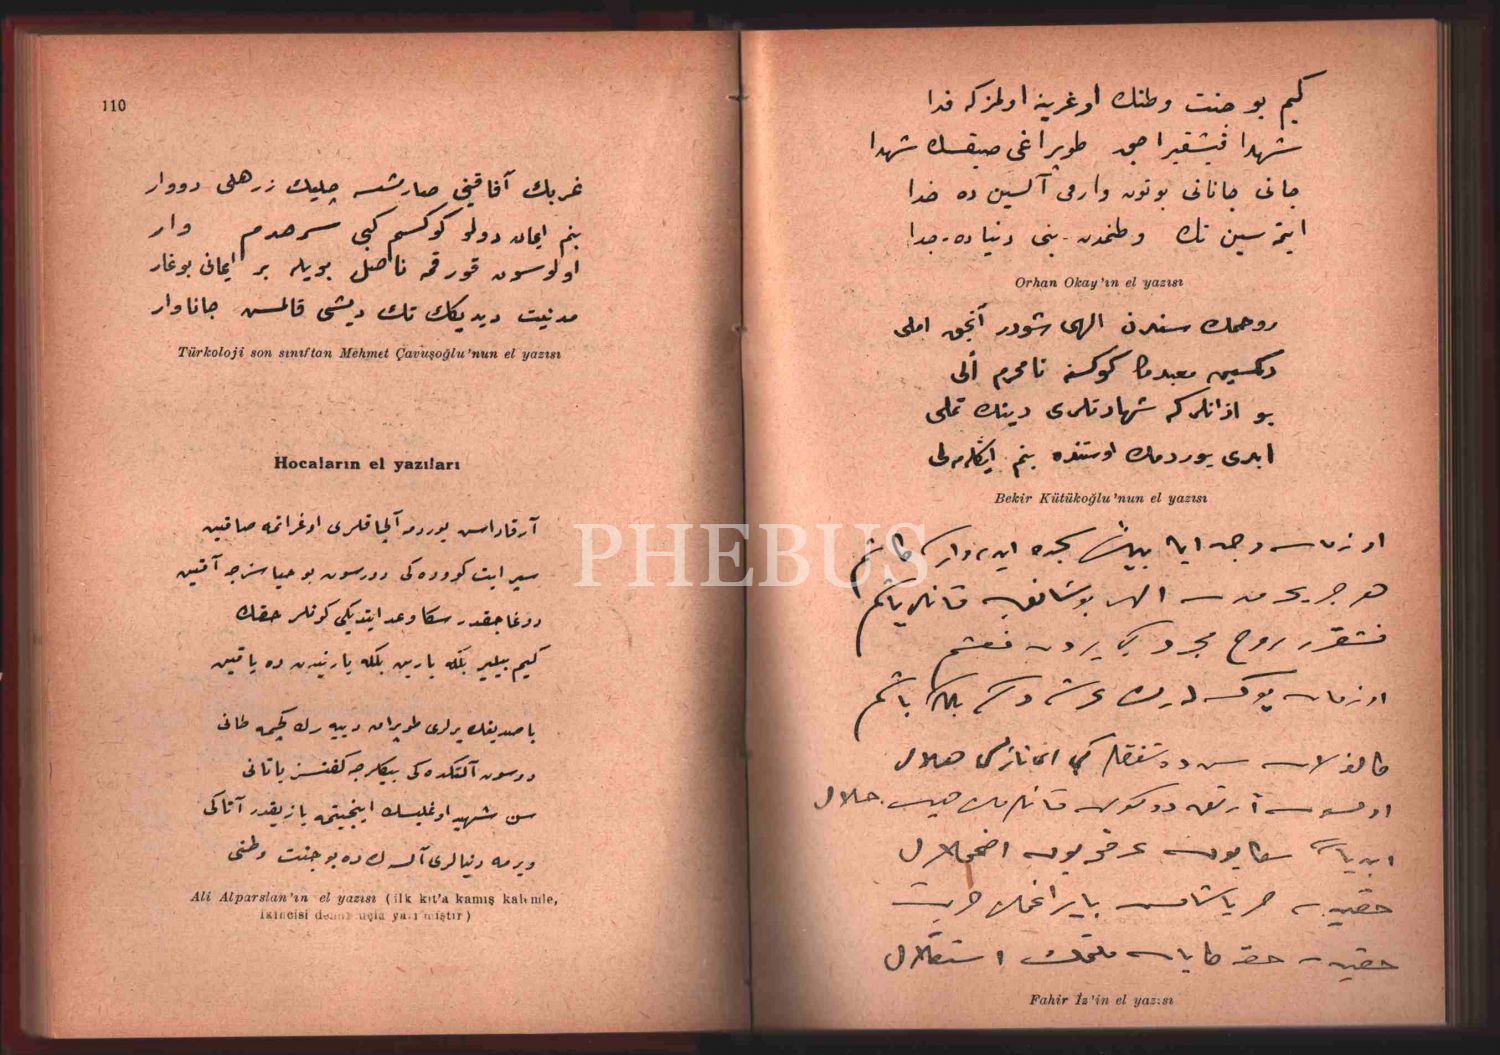 110
غربك آفاقنی صارمشسه چلیك زرهلی دووار
بنم ایمان دولو كوكسم كبی سرحدم وار
اولوسون قورقمه ناصل بویله بر ایمانی بوغار
مدنیت دیدیكك تك دیشی قالمش جاناوار
Türkoloji son sınıftan Mehmet Çavuşoğlu'nun el yazısı
Hocaların el yazıları
آرقاداش یوردمه آلچاقلری اوغراتمه صاقین
سپر ایت كووده كی دورسون بو حیاسزجه آقین
دوغاجقدر سكا وعد ایتدیكی كونلر حقك
كیم بیلیر بلكه یارین بلكه یاریندن ده یاقین
باصدیغك یرلری طوپراق دییه رك كچمه طانی
دوشون آلتكده كی بیكلرجه كفنسز یاتانی
سن شهید اوغلیسك اینجیتمه یازیقدر آتاكی
ویرمه دنیالری آلسه ك ده بو جنت وطنی
Ali Alparslan'ın el yazısı (ilk kıt'a kamış kalemle,
ikincisi demir uçla yazılmıştır)
كیم بو جنت وطنك اوغرینه اولمز كه فدا
شهدا فیشقیراجق طوپراغی صیقسك شهدا
جانی جانانی بوتون وارمی آلسین ده خدا
ایتمه سین تك وطنمدن بنی دنیاده جدا
Orhan Okay'ın el yazısı
روحمك سندن الهی شودر آنجق املی
دكمسین معبدمك كوكسنه نامحرم ألی
بو اذانلر كه شهادتلری دینك تملی
ابدی یوردمك اوستنده بنم ایكله ملی
Bekir Kütükoğlu'nun el yazısı
او زمان وجد ایله بیك سجده ایدر وارسه طاشم
هر جریحه مدن الهی بوشانوب قانلی یاشم
فیشقیرر روح مجرد كبی یردن نعشم
او زمان یوكسله رك عرشه دكر بلكه باشم
طالغالان سن ده شفقلر كبی ای نازلی هلال
اولسون آرتق دوكولن قانلرمك هپسی حلال
ابدیا سكا یوق عرقمه یوق اضمحلال
حقیدر حر یاشامش بایراغمك حریت
حقیدر حقه طاپان ملتمك استقلال
Fahir İz'in el yazısı
PHEBUS